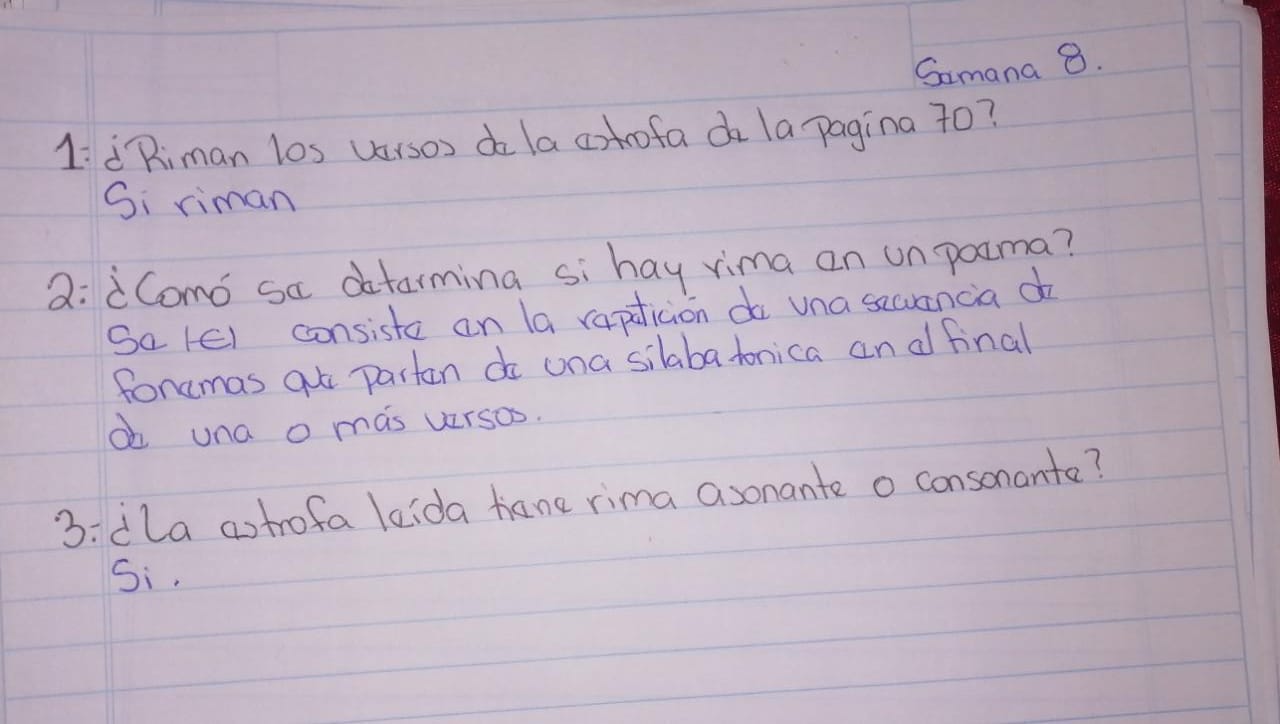 Semana 8.
1: ¿Riman los versos de la estrofa de la pagina 70?
Si riman
2: ¿Comó se determina si hay rima en un poema?
Se consiste en la repetición de una secuencia de
fonemas que parten de una sílaba tonica en el final
de una o más versos.
3: ¿La estrofa leída tiene rima asonante o consonante?
Si.